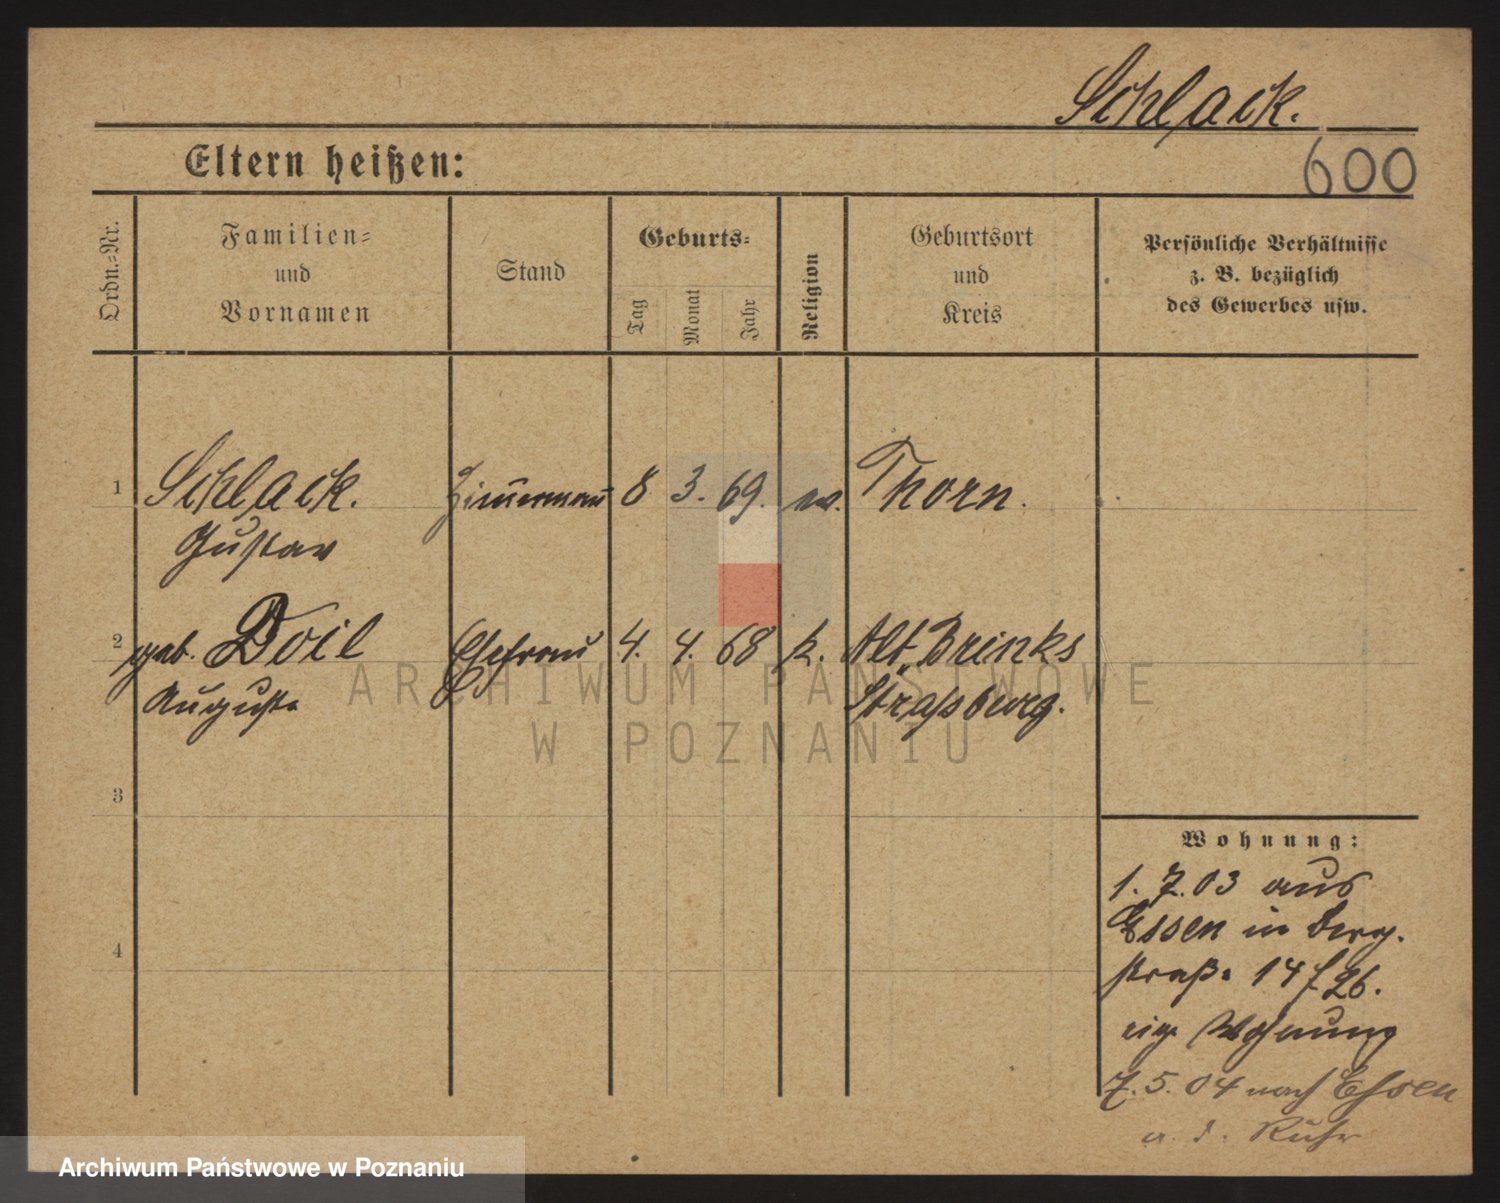 Schlack.
Eltern heißen:
600
Ordn.=Nr.
Familien=
und
Vornamen
Stand
Geburts=
Tag
Monat
Jahr
Religion
Geburtsort
und
Kreis
Persönliche Verhältnisse
z. B. bezüglich
des Gewerbes usw.
1 Schlack. Zimmermann 8 3. 69. ev. Thorn.
Gustav
2 geb. Doil Ehefrau 4. 4. 68 k. Alt Brinks
Auguste Straßburg.
3
4
Wohnung:
1. 7. 03 aus
Essen in Berg-
straße 14 / 26.
eig. Wohnung
7. 5. 04 nach Essen
a. d. Ruhr
ARCHIWUM PAŃSTWOWE
W POZNANIU
Archiwum Państwowe w Poznaniu